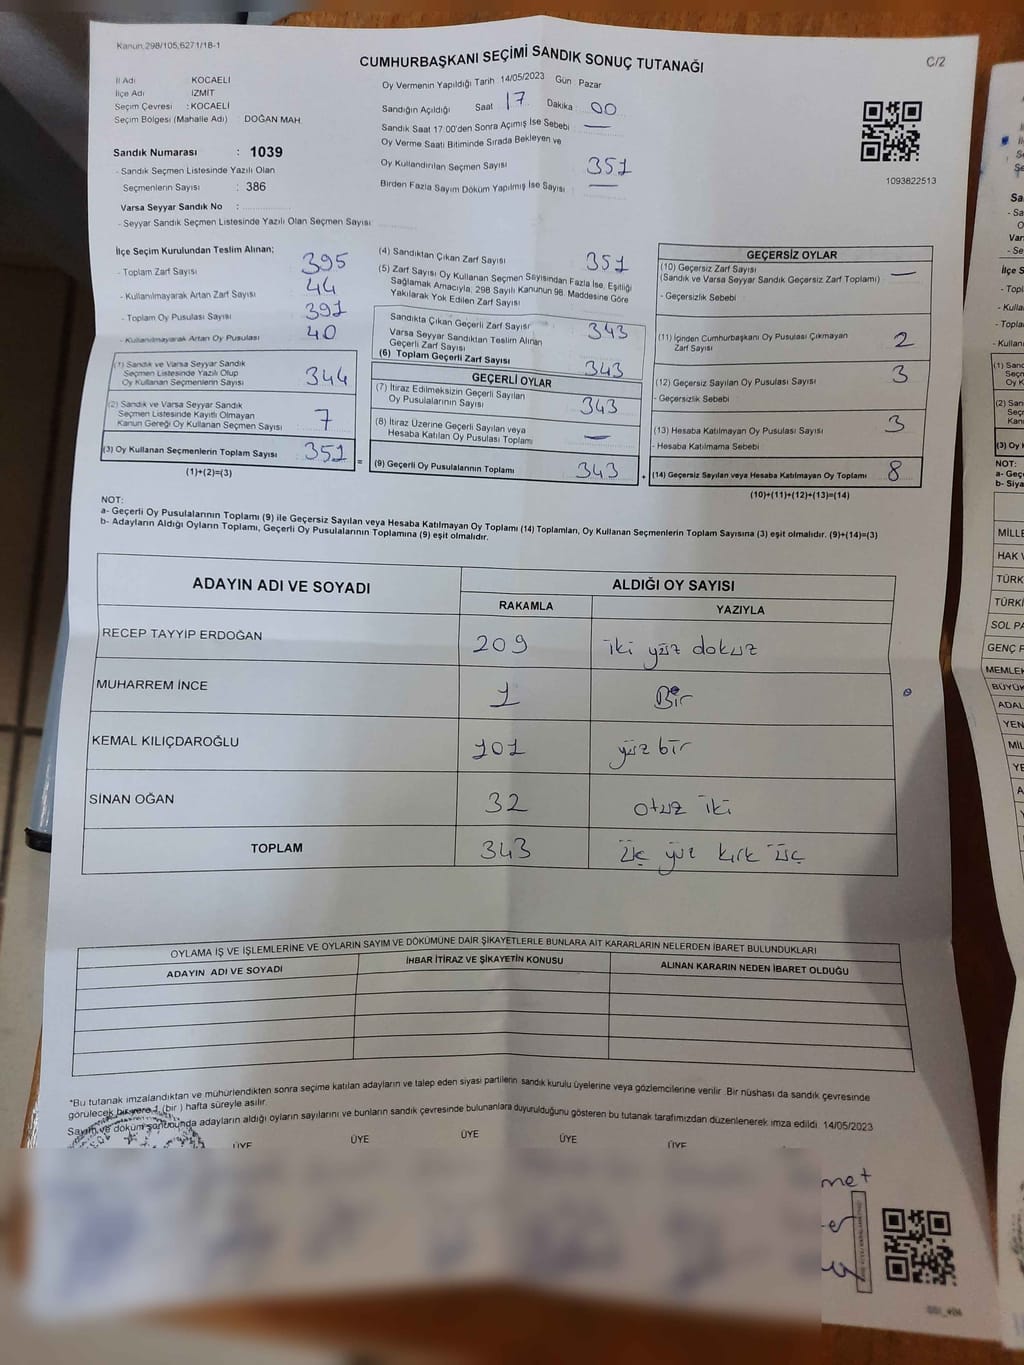 Kanun,298/105,6271/18-1
CUMHURBAŞKANI SEÇİMİ SANDIK SONUÇ TUTANAĞI
C/2
İl Adı KOCAELİ
İlçe Adı İZMİT
Seçim Çevresi : KOCAELİ
Seçim Bölgesi (Mahalle Adı) DOĞAN MAH.
Sandık Numarası : 1039
- Sandık Seçmen Listesinde Yazılı Olan
Seçmenlerin Sayısı : 386
Varsa Seyyar Sandık No :
- Seyyar Sandık Seçmen Listesinde Yazılı Olan Seçmen Sayısı
Oy Vermenin Yapıldığı Tarih 14/05/2023 Gün Pazar
Sandığın Açıldığı Saat 17 Dakika 00
Sandık Saat 17:00'den Sonra Açımış İse Sebebi —
Oy Verme Saati Bitiminde Sırada Bekleyen ve
Oy Kullandırılan Seçmen Sayısı 351
Birden Fazla Sayım Döküm Yapılmış İse Sayısı —
1093822513
İlçe Seçim Kurulundan Teslim Alınan;
- Toplam Zarf Sayısı 395
- Kullanılmayarak Artan Zarf Sayısı 44
- Toplam Oy Pusulası Sayısı 391
- Kullanılmayarak Artan Oy Pusulası 40
(1) Sandık ve Varsa Seyyar Sandık
Seçmen Listesinde Yazılı Olup
Oy Kullanan Seçmenlerin Sayısı 344
(2) Sandık ve Varsa Seyyar Sandık
Seçmen Listesinde Kayıtlı Olmayan
Kanun Gereği Oy Kullanan Seçmen Sayısı 7
(3) Oy Kullanan Seçmenlerin Toplam Sayısı 351
(1)+(2)=(3)
(4) Sandıktan Çıkan Zarf Sayısı 351
(5) Zarf Sayısı Oy Kullanan Seçmen Sayısından Fazla İse, Eşitliği
Sağlamak Amacıyla, 298 Sayılı Kanunun 98. Maddesine Göre
Yakılarak Yok Edilen Zarf Sayısı
Sandıkta Çıkan Geçerli Zarf Sayısı 343
Varsa Seyyar Sandıktan Teslim Alınan
Geçerli Zarf Sayısı
(6) Toplam Geçerli Zarf Sayısı 343
GEÇERLİ OYLAR
(7) İtiraz Edilmeksizin Geçerli Sayılan
Oy Pusulalarının Sayısı 343
(8) İtiraz Üzerine Geçerli Sayılan veya
Hesaba Katılan Oy Pusulası Toplamı —
(9) Geçerli Oy Pusulalarının Toplamı 343
GEÇERSİZ OYLAR
(10) Geçersiz Zarf Sayısı —
(Sandık ve Varsa Seyyar Sandık Geçersiz Zarf Toplamı)
- Geçersizlik Sebebi
(11) İçinden Cumhurbaşkanı Oy Pusulası Çıkmayan
Zarf Sayısı 2
(12) Geçersiz Sayılan Oy Pusulası Sayısı 3
- Geçersizlik Sebebi
(13) Hesaba Katılmayan Oy Pusulası Sayısı 3
- Hesaba Katılmama Sebebi
(14) Geçersiz Sayılan veya Hesaba Katılmayan Oy Toplamı 8
(10)+(11)+(12)+(13)=(14)
NOT:
a- Geçerli Oy Pusulalarının Toplamı (9) ile Geçersiz Sayılan veya Hesaba Katılmayan Oy Toplamı (14) Toplamları, Oy Kullanan Seçmenlerin Toplam Sayısına (3) eşit olmalıdır. (9)+(14)=(3)
b- Adayların Aldığı Oyların Toplamı, Geçerli Oy Pusulalarının Toplamına (9) eşit olmalıdır.
ADAYIN ADI VE SOYADI ALDIĞI OY SAYISI
RAKAMLA YAZIYLA
RECEP TAYYİP ERDOĞAN 209 iki yüz dokuz
MUHARREM İNCE 1 Bir
KEMAL KILIÇDAROĞLU 101 yüz bir
SİNAN OĞAN 32 otuz iki
TOPLAM 343 üç yüz kırk üç
OYLAMA İŞ VE İŞLEMLERİNE VE OYLARIN SAYIM VE DÖKÜMÜNE DAİR ŞİKAYETLERLE BUNLARA AİT KARARLARIN NELERDEN İBARET BULUNDUKLARI
ADAYIN ADI VE SOYADI İHBAR İTİRAZ VE ŞİKAYETİN KONUSU ALINAN KARARIN NEDEN İBARET OLDUĞU
*Bu tutanak imzalandıktan ve mühürlendikten sonra seçime katılan adayların ve talep eden siyasi partilerin sandık kurulu üyelerine veya gözlemcilerine verilir. Bir nüshası da sandık çevresinde
görülecek bir yere 1 (bir) hafta süreyle asılır.
Sayım ve döküm sonucunda adayların aldığı oyların sayılarını ve bunların sandık çevresinde bulunanlara duyurulduğunu gösteren bu tutanak tarafımızdan düzenlenerek imza edildi. 14/05/2023
ÜYE ÜYE ÜYE ÜYE ÜYE